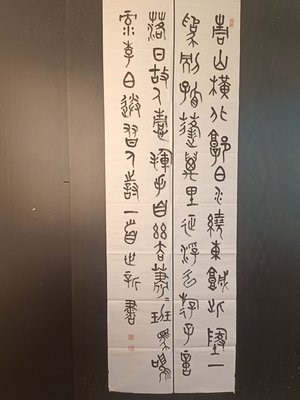 青山橫北郭白水繞東城此地一
為別孤蓬萬里征浮雲游子意
落日故人情揮手自茲去蕭蕭班馬鳴
李白送友人詩一首世新書